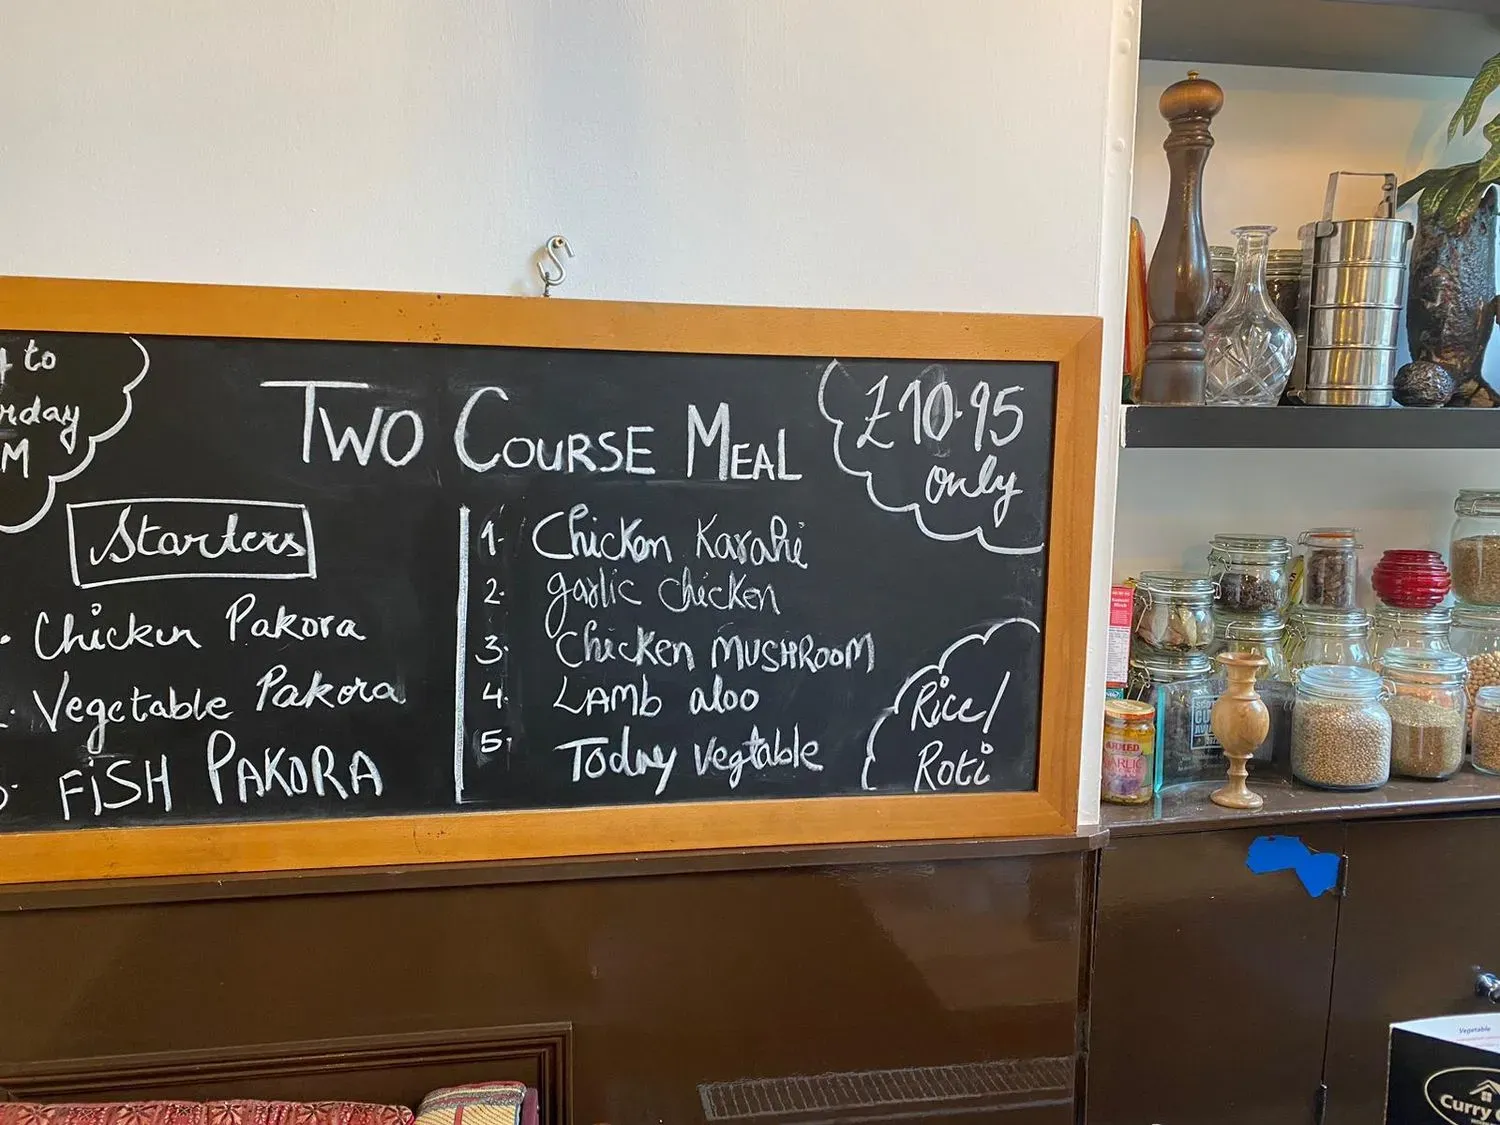 to
M
TWO COURSE MEAL
£10.95
only
Starters
Chicken Pakora
Vegetable Pakora
FiSH PAKORA
1. Chicken Karahi
2. garlic chicken
3. Chicken MUSHROOM
4. LAMB aloo
5. Today vegtable
Rice/
Roti
GARLIC
Vegetable
Curry